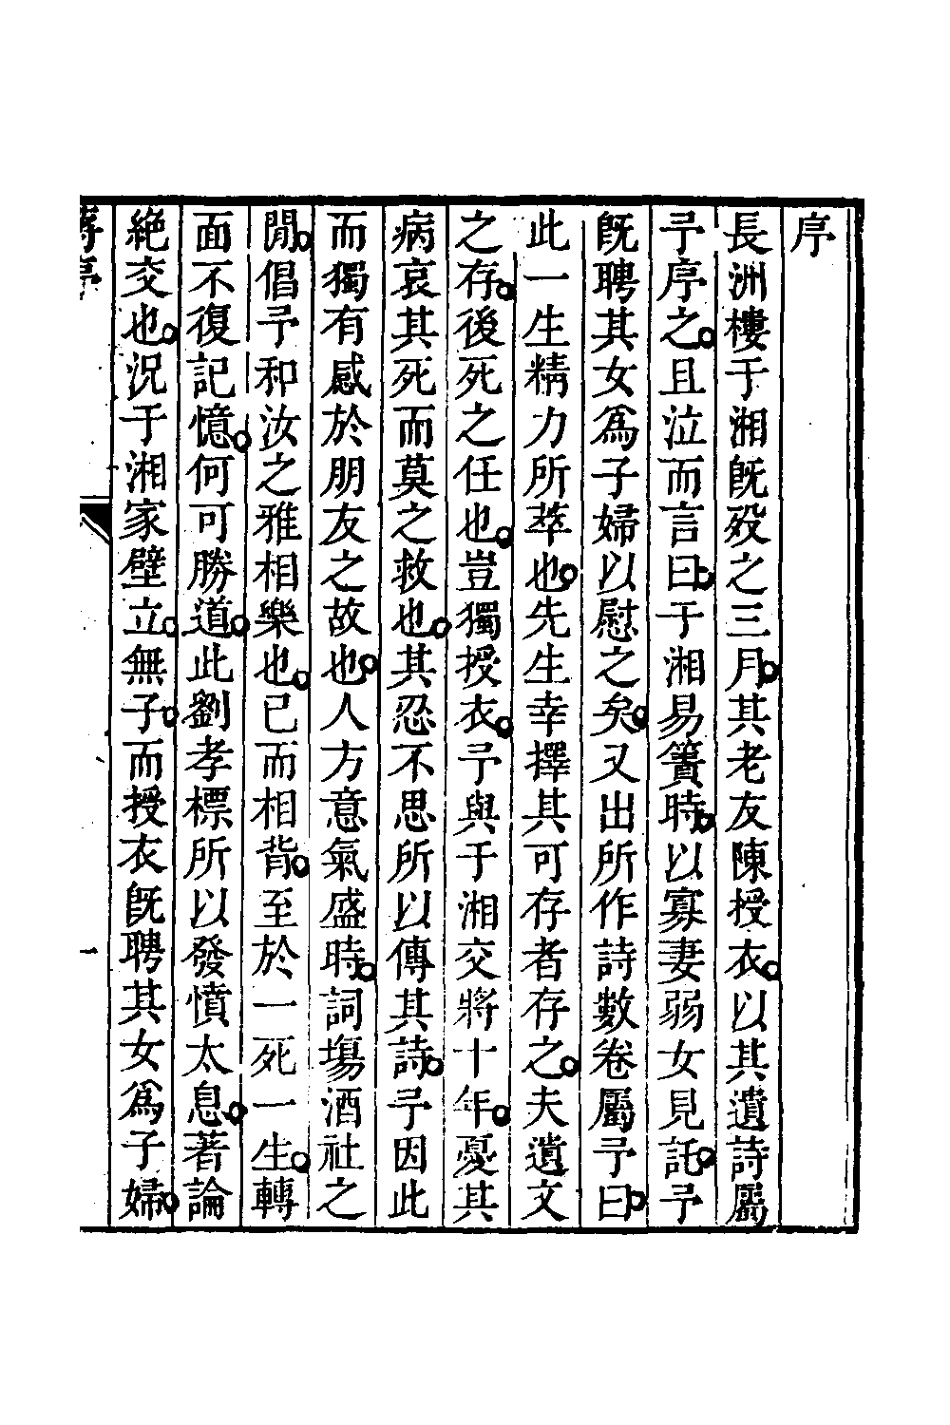 序
長洲樓于湘旣歿之三月。其老友陳授衣。以其遺詩屬
予序之。且泣而言曰。于湘易簀時。以寡妻弱女見託。予
旣聘其女爲子婦以慰之矣。又出所作詩數卷屬予曰。
此一生精力所萃也。先生幸擇其可存者存之。夫遺文
之存。後死之任也。豈獨授衣。予與于湘交將十年。憂其
病哀其死而莫之救也。其忍不思所以傳其詩。予因此
而獨有感於朋友之故也。人方意氣盛時。詞場酒社之
閒。倡予和汝之雅相樂也。已而相背。至於一死一生。轉
面不復記憶。何可勝道。此劉孝標所以發憤太息。著論
絕交也。況于湘家壁立。無子。而授衣旣聘其女爲子婦。
蔣序
一